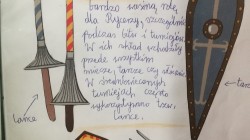 bardzo ważną rolę
dla Rycerzy, szczególnie
podczas bitw i turniejów.
W ich skład wchodziły
przede wszystkim
miecze, tarcze czy
W średniowiecznych
turniejach, często
wykorzystywano tzw.
Lance.
Lance
tarc